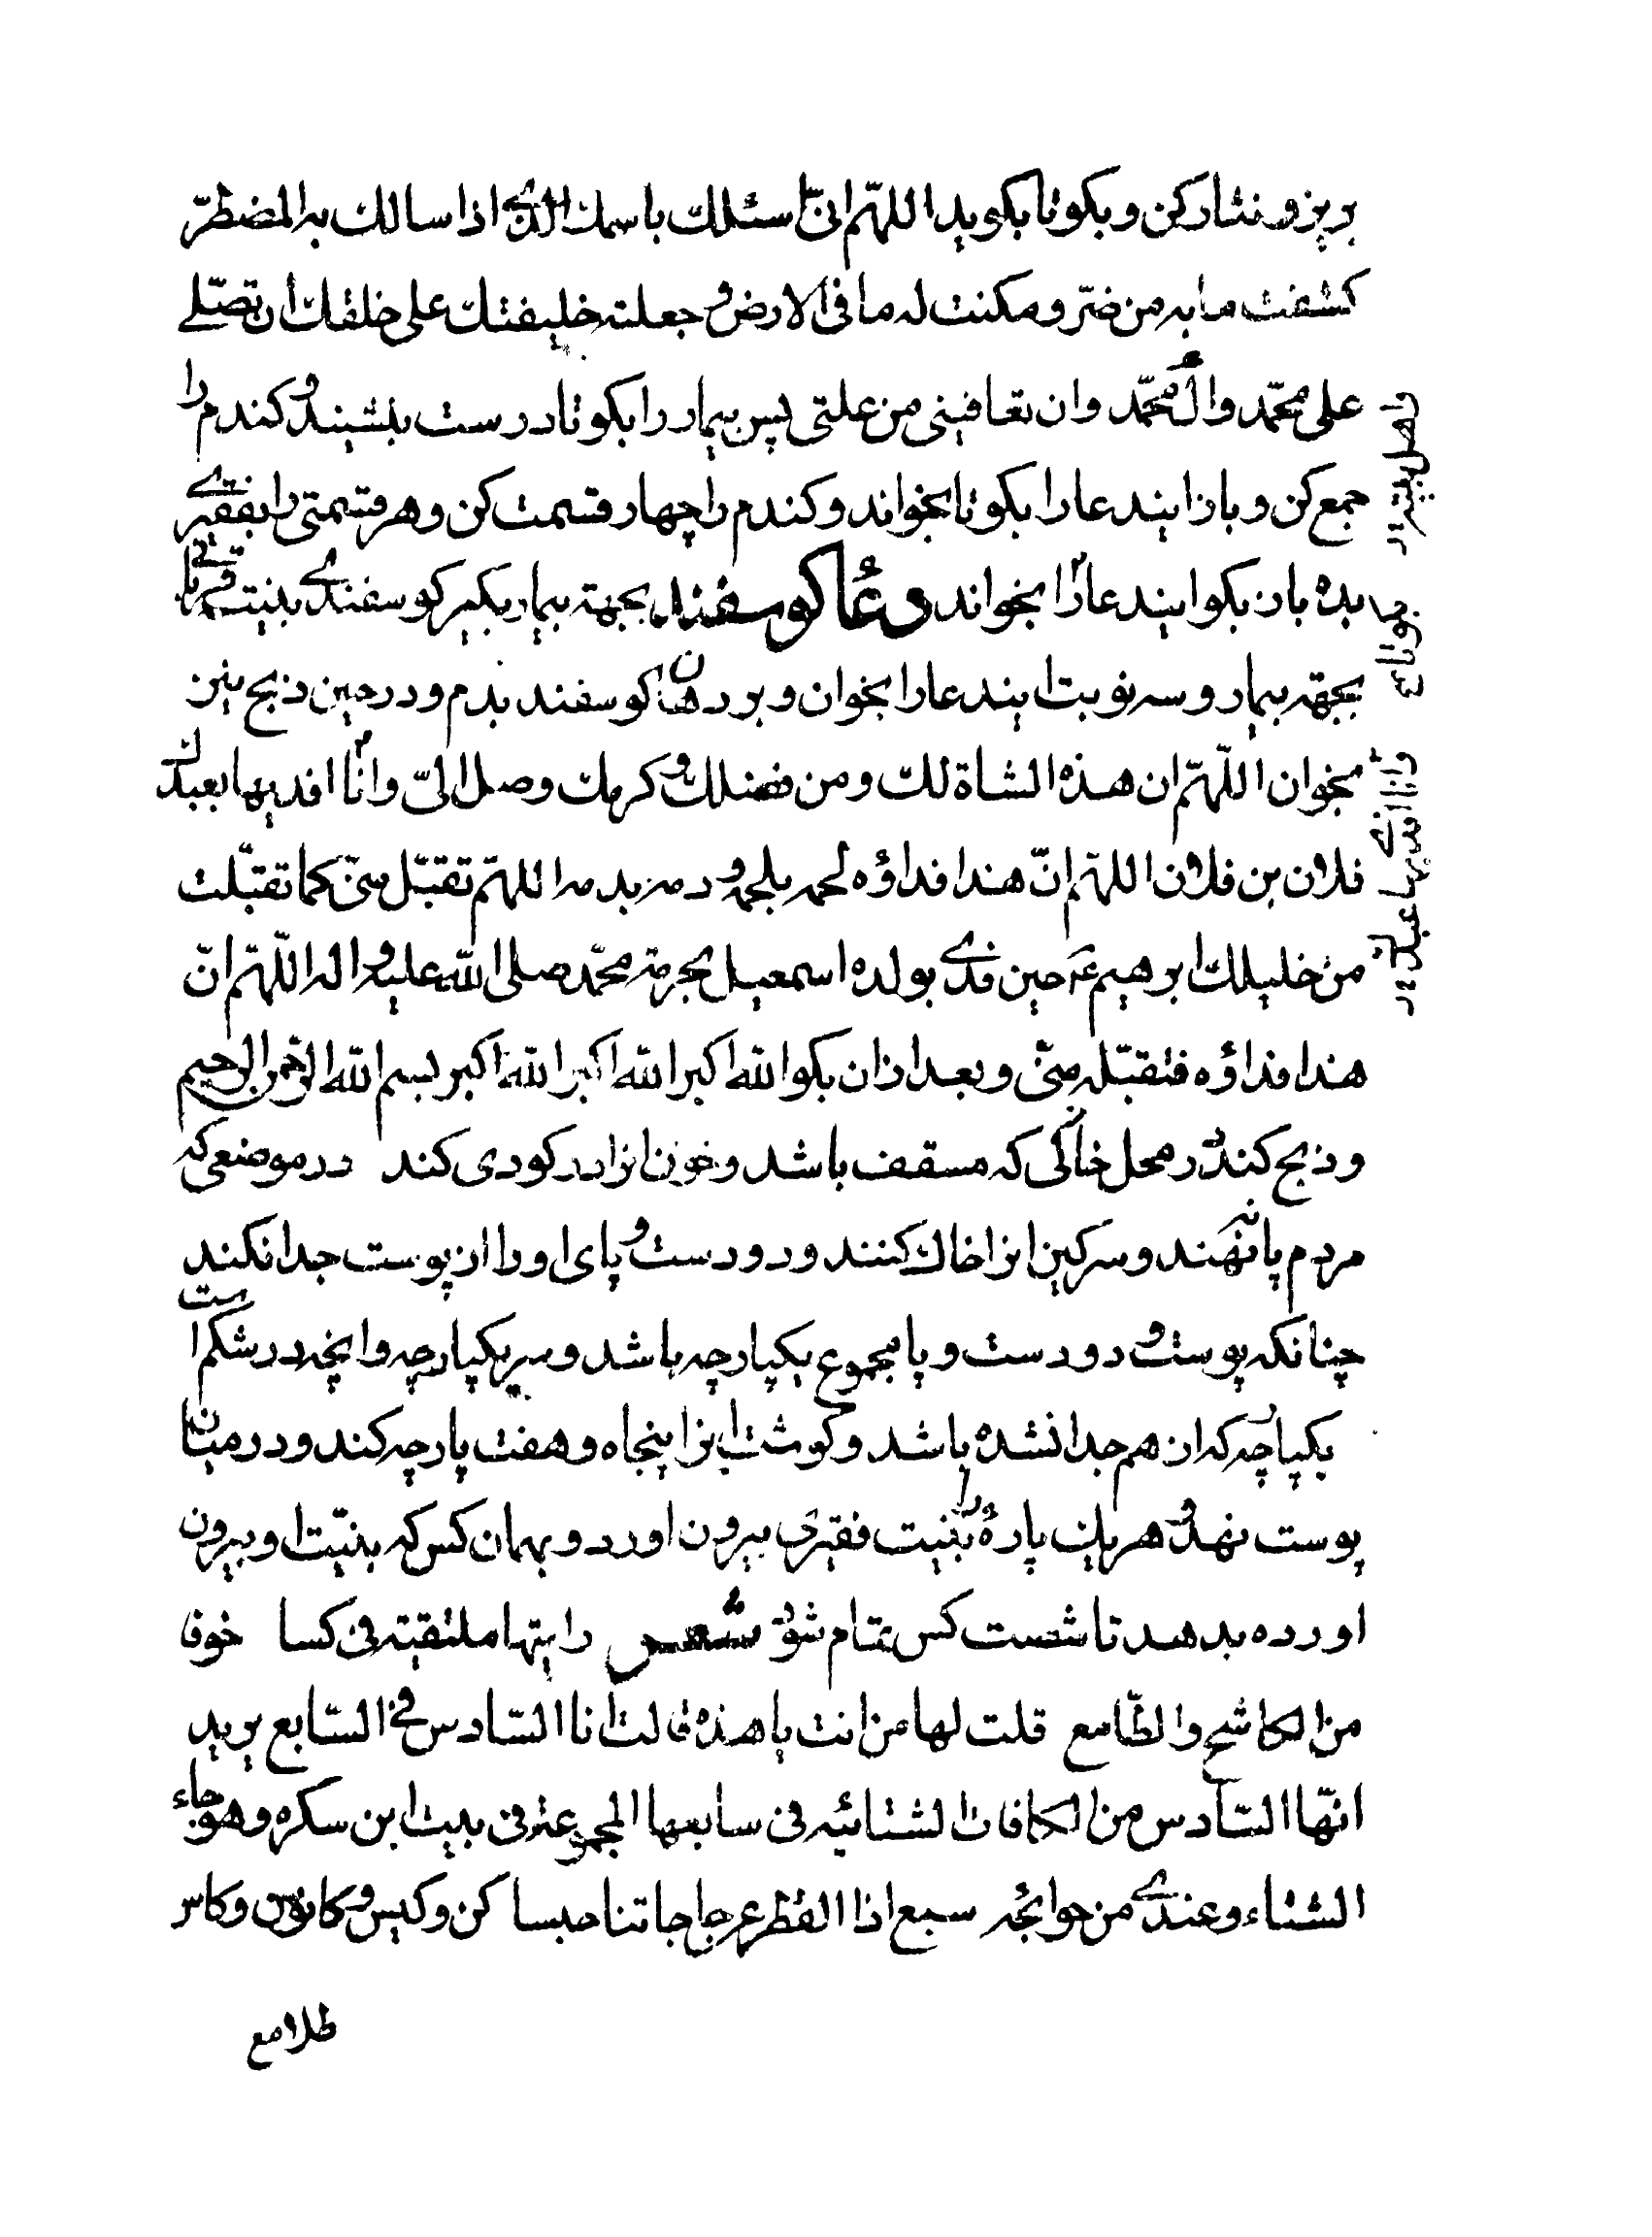 بریز و نثار کن و بکو تا بکوید اللهمّ انّی اسئلك باسمك الذی اذا سالك به المضطرّ
کشفت ما به من ضرّ و مکنت له ما فی الارض و جعلته خلیفتك علی خلقك ان تصلّی
علی محمّد وال محمّد وان تعافینی من علتی پس بیمار را بکو تا درست بنشیند و کندم را
جمع کن و باز ایندعا را بکو تا بخواند و کندم را چهار قسمت کن و هر قسمتی را بفقیری
بده باز بکو ایندعا را بخواند دعا کوسفند بجهته بیمار بکیر کوسفندی بنیت قربانی
بجهته بیمار و سه نوبت ایندعا را بخوان و بر دهان کوسفند بدم و در حین ذبح نیز
بخوان اللّهمّ ان هذه الشاة لك و من فضلك و کرمك وصل الیّ وانا افدیها بعبدك
فلان بن فلان اللهمّ انّ هذا فداؤه لحمه بلحمه و دمه بدمه اللهمّ تقبّل منّی کما تقبّلت
من خلیلك ابرهیم ع حین فدی بولده اسمعیل بحرمة محمّد صلی اللّه علیه و اله اللّهمّ انّ
هذا فداؤه فتقبّله منّی و بعد از ان بکو اللّه اکبر اللّه اکبر اللّه اکبر بسم اللّه الرّحمن الرحیم
و ذبح کند در محل خالی که مسقف باشد و خون انرا در کودی کند در موضعی که
مردم پا ننهند و سرکین انرا خاك کنند و دو دست و پای او را از پوست جدا نکنند
چنانکه پوست و دو دست و پا مجموع یکپارچه باشد و سر یکپارچه وانچه در شکم است
یکپارچه که از هم جدا نشده باشد و کوشت انرا پنجاه و هفت پارچه کند و در میان
پوست نهد و هر یك پارۀ را بنیت فقیری بیرون اورد و بهمان کس که بنیّت او بیرون
اورده بدهد تا شصت کس تمام شود شعر رایتها ملتقیته فی کسا خوفا
من الکاشح والطّامع قلت لها من انت یا هذه قالت انا السّادس فی السّابع یرید
انّها السّادس من الکافات الشتائیه فی سابعها المجموعته فی بیت ابن سکره و هو جاء
الشتاء و عندی من حوائجه سبع اذا القطر عن حاجاتنا حبسا کن و کیس و کانون و کاس
طلا مع
و اهل بیته
وانا افدیها عبدك